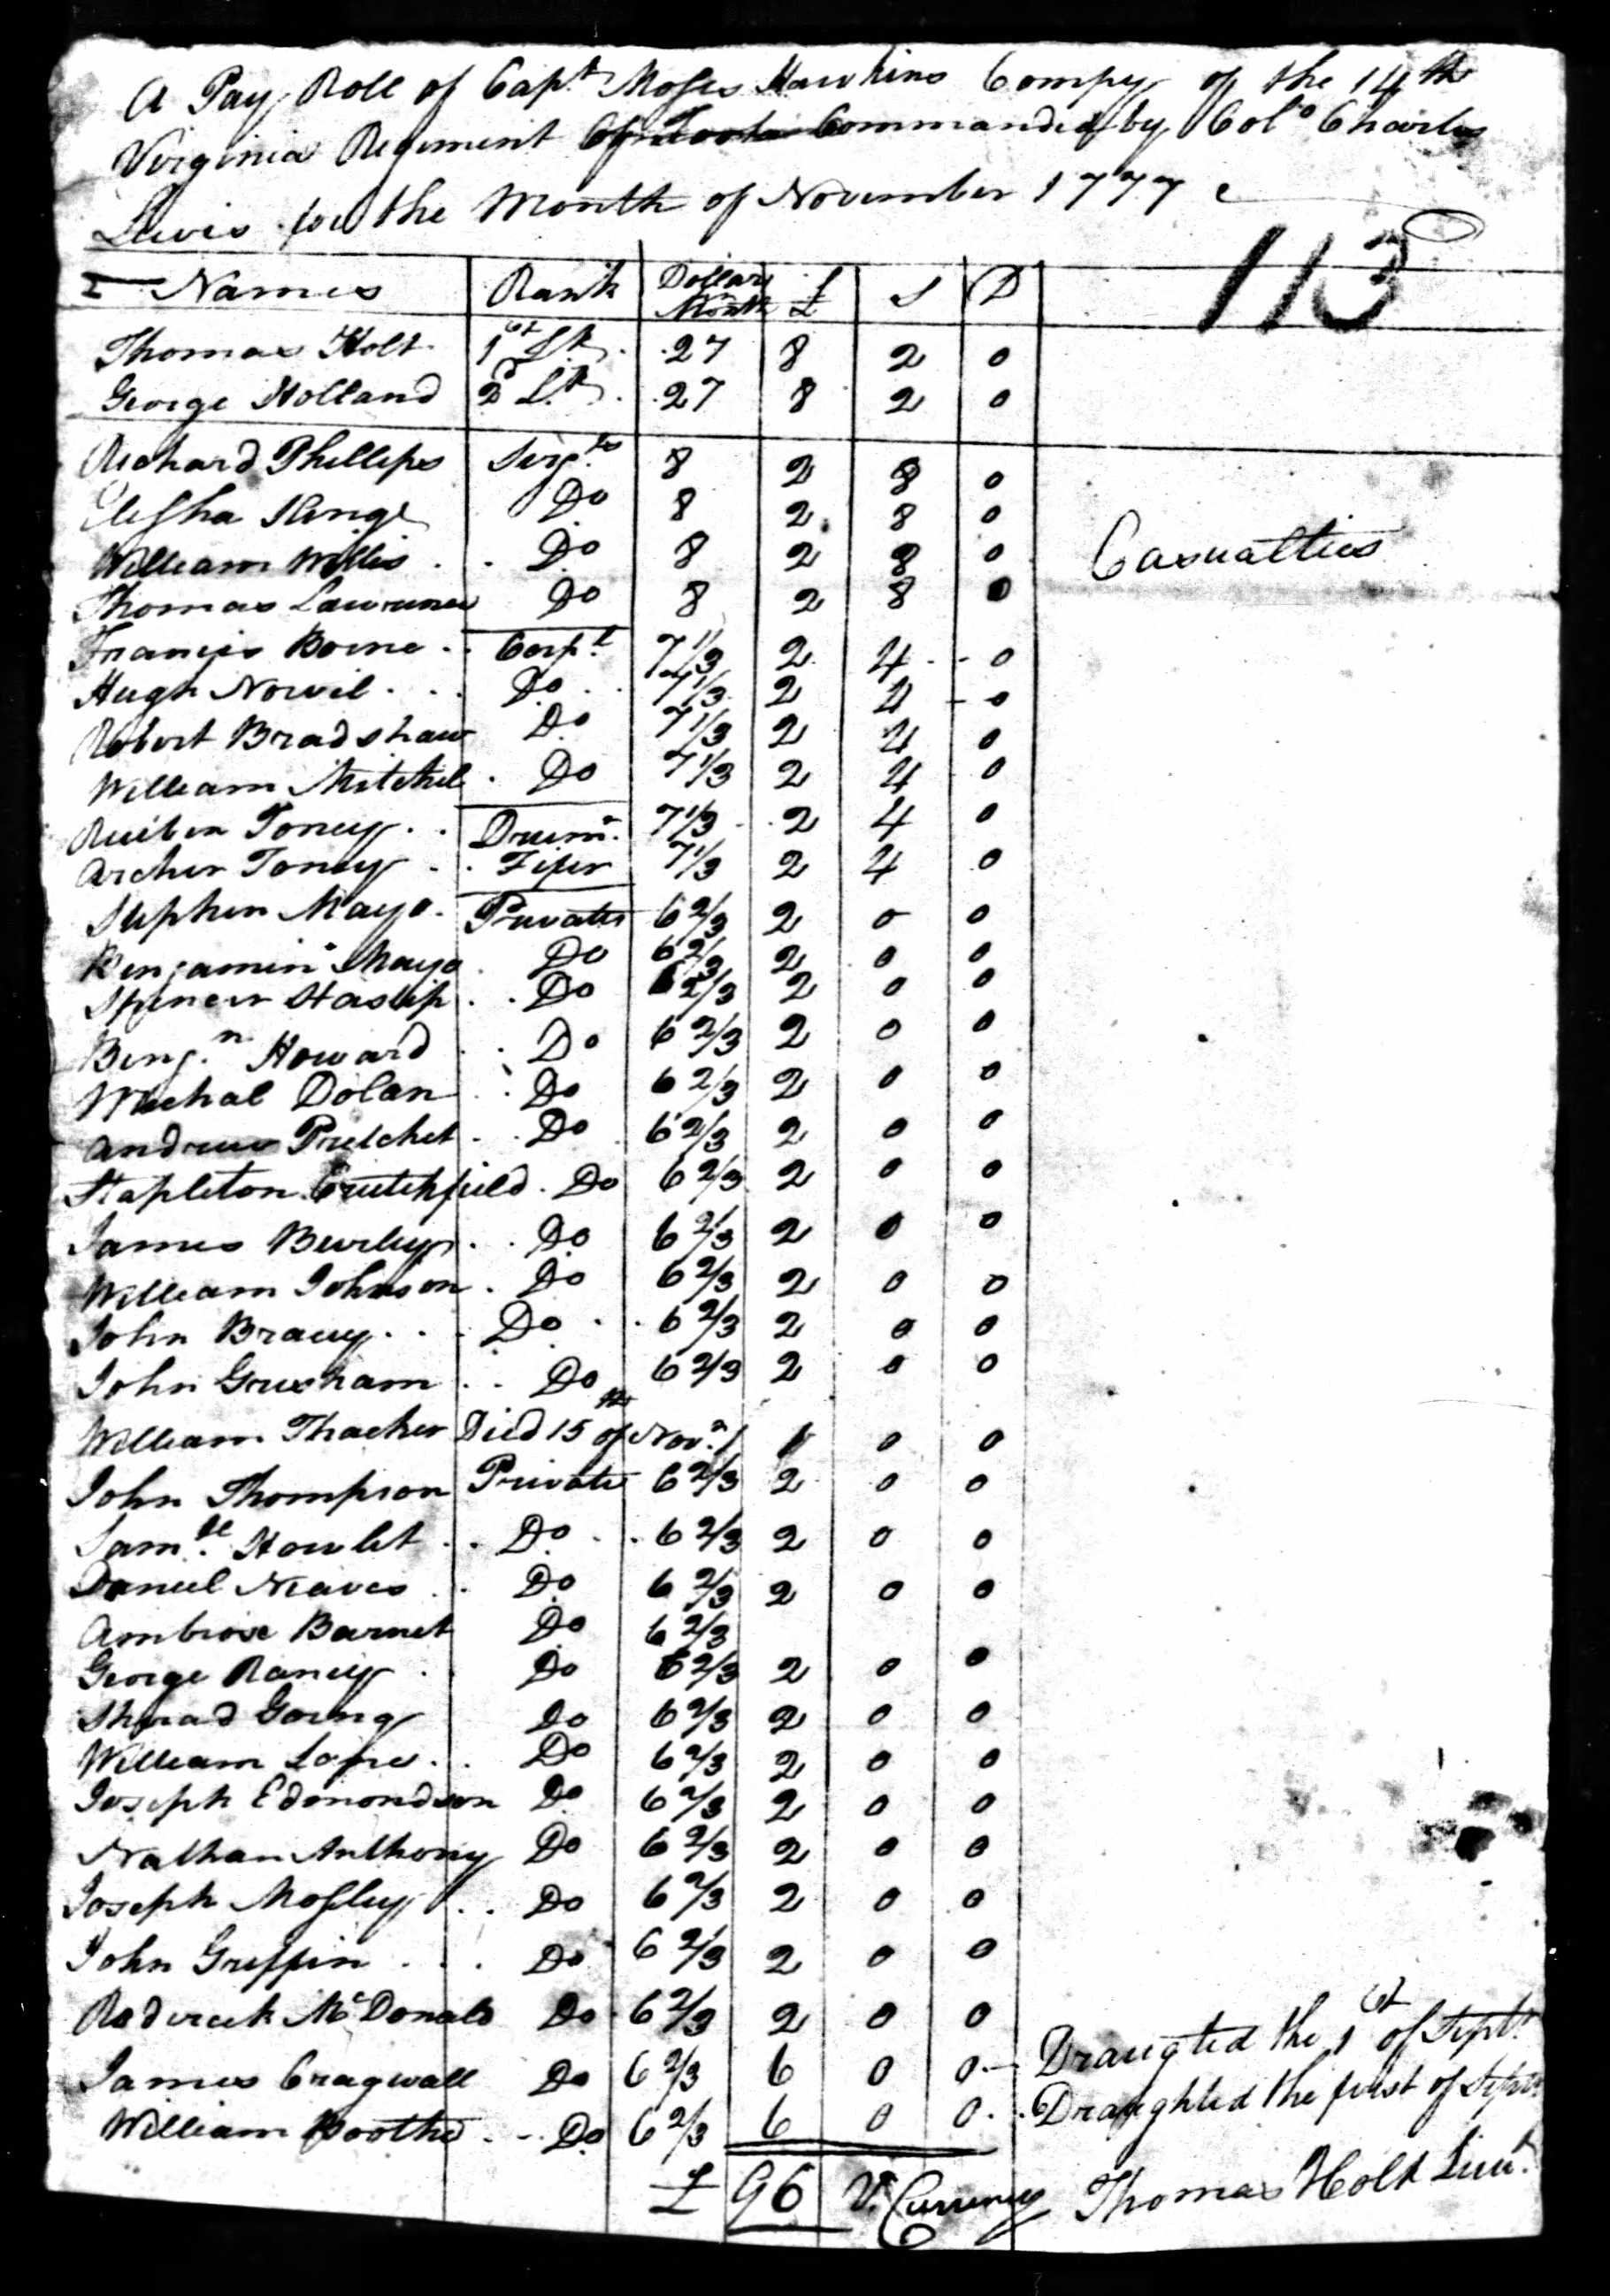 A Pay Roll of Capt Moses Hawkins Compy of the 14th
Virginia Regiment Commanded by Colo Charles
Lewis for the Month of November 1777
113
Names Rank Dollars Month £ S D
Thomas Holt 1st Lt 27 8 2 0
George Holland 2d Lt 27 8 2 0
Richard Phillips Sergts 8 2 8 0
Elisha King Do 8 2 8 0
Casualties
William Willis Do 8 2 8 0
Thomas Lawrence Do 8 2 8 0
Francis Borne Corpl 7 1/3 2 4 0
Hugh Norvil Do 7 1/3 2 4 0
Robert Bradshaw Do 7 1/3 2 4 0
William Mitchel Do 7 1/3 2 4 0
Reuben Toney Drumr 7 1/3 2 4 0
Archer Toney Fifer 7 1/3 2 4 0
Stephen Mayo Privates 6 2/3 2 0 0
Benjamin Mayo Do 6 2/3 2 0 0
Spencer Haslip Do 6 2/3 2 0 0
Benjn Howard Do 6 2/3 2 0 0
Michal Dolan Do 6 2/3 2 0 0
Andrew Pretchet Do 6 2/3 2 0 0
Stapleton Crutchfield Do 6 2/3 2 0 0
James Burley Do 6 2/3 2 0 0
William Johnson Do 6 2/3 2 0 0
John Bracey Do 6 2/3 2 0 0
John Gresham Do 6 2/3 2 0 0
William Thacker Died 15th of Novr 1 0 0
John Thompson Private 6 2/3 2 0 0
Samll Howlet Do 6 2/3 2 0 0
Daniel Neaves Do 6 2/3 2 0 0
Ambrose Barnet Do 6 2/3
George Raney Do 6 2/3 2 0 0
Sherad Going Do 6 2/3 2 0 0
William Do 6 2/3 2 0 0
Joseph Edmondson Do 6 2/3 2 0 0
Nathan Anthony Do 6 2/3 2 0 0
Joseph Mosley Do 6 2/3 2 0 0
John Griffin Do 6 2/3 2 0 0
Roderick McDonald Do 6 2/3 2 0 0
James Cragwall Do 6 2/3 6 0 0 Draugted the 1st of Septr
William Boothe Do 6 2/3 6 0 0 Draughted the first of Septr
£ 96 V. Currency Thomas Holt Lieut